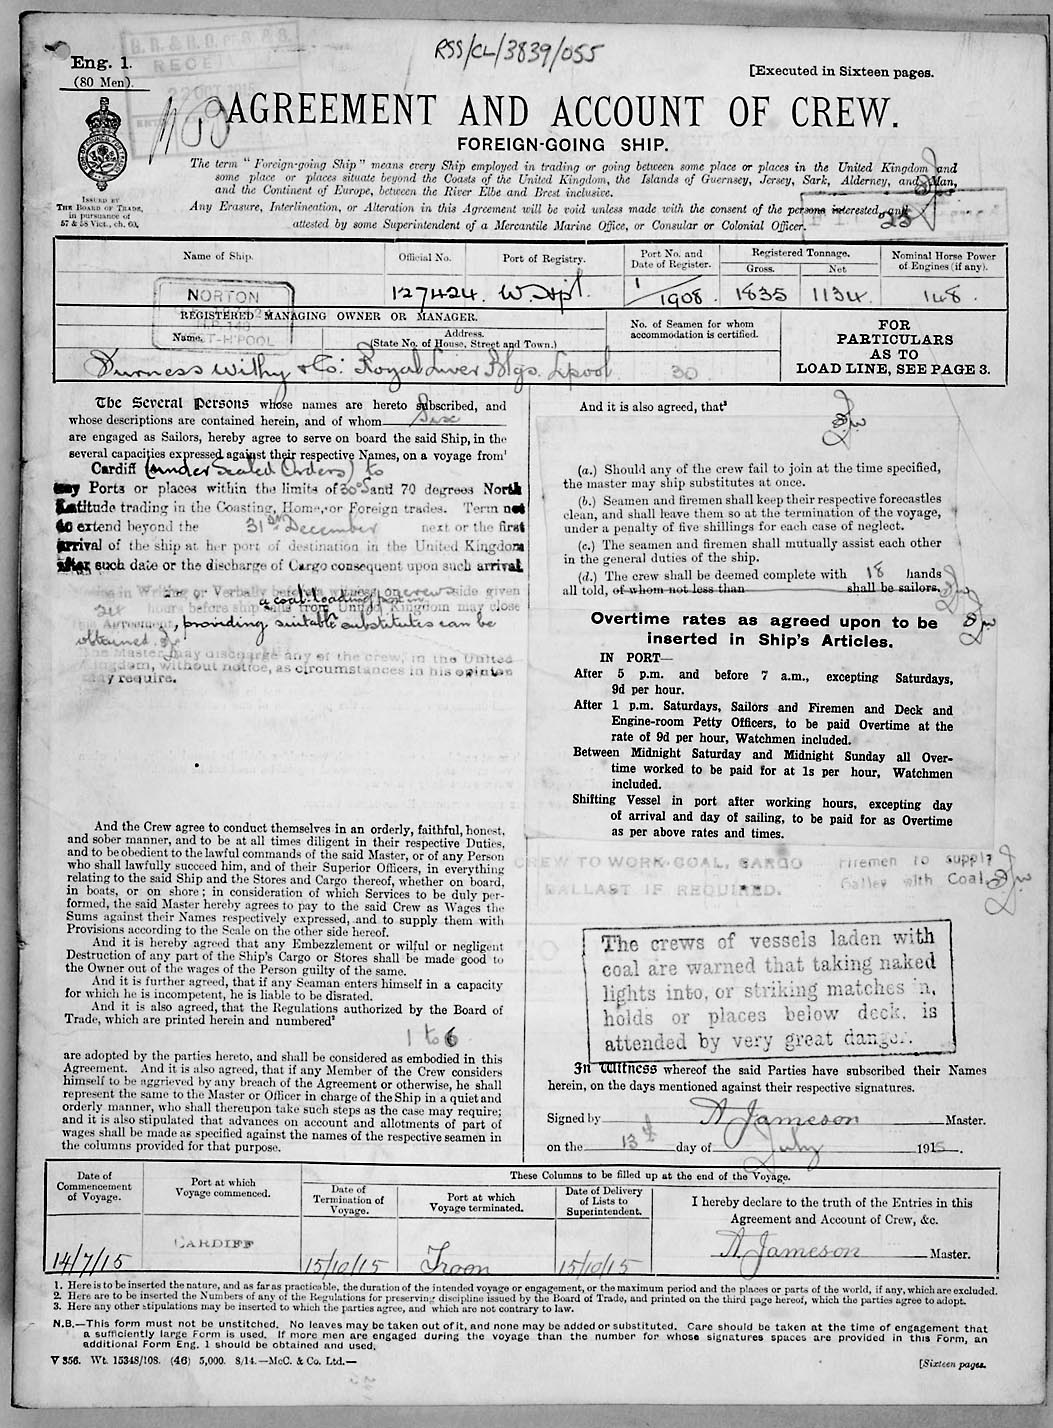 RSS/CL/3839/055
Eng. 1.
(80 Men).
[Executed in Sixteen pages.
AGREEMENT AND ACCOUNT OF CREW.
FOREIGN-GOING SHIP.
The term "Foreign-going Ship" means every Ship employed in trading or going between some place or places in the United Kingdom and
some place or places situate beyond the Coasts of the United Kingdom, the Islands of Guernsey, Jersey, Sark, Alderney, and Man,
and the Continent of Europe, between the River Elbe and Brest inclusive.
Any Erasure, Interlineation, or Alteration in this Agreement will be void unless made with the consent of the persons interested, and
attested by some Superintendent of a Mercantile Marine Office, or Consular or Colonial Officer.
ISSUED BY
THE BOARD OF TRADE,
in pursuance of
57 & 58 Vict., ch. 60.
Name of Ship. Official No. Port of Registry. Port No. and Date of Register. Registered Tonnage. Gross. Net Nominal Horse Power of Engines (if any).
NORTON 127424. W. Hpl. 1/1908. 1835 1134. 148.
REGISTERED MANAGING OWNER OR MANAGER.
Name. Address.
(State No. of House, Street and Town.)
No. of Seamen for whom
accommodation is certified.
Furness Withy & Co: Royal Liver Blgs. Lpool 30
FOR
PARTICULARS
AS TO
LOAD LINE, SEE PAGE 3.
The Several Persons whose names are hereto subscribed, and
whose descriptions are contained herein, and of whom Six
are engaged as Sailors, hereby agree to serve on board the said Ship, in the
several capacities expressed against their respective Names, on a voyage from¹
Cardiff (under Sealed Orders) to
any Ports or places within the limits of 30°S and 70 degrees North
Latitude trading in the Coasting, Home, or Foreign trades. Term not
to extend beyond the 31st December next or the first
arrival of the ship at her port of destination in the United Kingdom
after such date or the discharge of Cargo consequent upon such arrival.
in Writing or Verbally before a witness, on either side given
a coal loading port in
24 hours before ship sails from United Kingdom may close
this Agreement, providing suitable substitutes can be
obtained.
The Master may discharge any of the crew, in the United
Kingdom, without notice, as circumstances in his opinion
may require.
And the Crew agree to conduct themselves in an orderly, faithful, honest,
and sober manner, and to be at all times diligent in their respective Duties,
and to be obedient to the lawful commands of the said Master, or of any Person
who shall lawfully succeed him, and of their Superior Officers, in everything
relating to the said Ship and the Stores and Cargo thereof, whether on board,
in boats, or on shore; in consideration of which Services to be duly per-
formed, the said Master hereby agrees to pay to the said Crew as Wages the
Sums against their Names respectively expressed, and to supply them with
Provisions according to the Scale on the other side hereof.
And it is hereby agreed that any Embezzlement or wilful or negligent
Destruction of any part of the Ship's Cargo or Stores shall be made good to
the Owner out of the wages of the Person guilty of the same.
And it is further agreed, that if any Seaman enters himself in a capacity
for which he is incompetent, he is liable to be disrated.
And it is also agreed, that the Regulations authorized by the Board of
Trade, which are printed herein and numbered²
1 to 6
are adopted by the parties hereto, and shall be considered as embodied in this
Agreement. And it is also agreed, that if any Member of the Crew considers
himself to be aggrieved by any breach of the Agreement or otherwise, he shall
represent the same to the Master or Officer in charge of the Ship in a quiet and
orderly manner, who shall thereupon take such steps as the case may require;
and it is also stipulated that advances on account and allotments of part of
wages shall be made as specified against the names of the respective seamen in
the columns provided for that purpose.
And it is also agreed, that³
(a.) Should any of the crew fail to join at the time specified,
the master may ship substitutes at once.
(b.) Seamen and firemen shall keep their respective forecastles
clean, and shall leave them so at the termination of the voyage,
under a penalty of five shillings for each case of neglect.
(c.) The seamen and firemen shall mutually assist each other
in the general duties of the ship.
(d.) The crew shall be deemed complete with 18 hands
all told, of whom not less than shall be sailors.
Overtime rates as agreed upon to be
inserted in Ship's Articles.
IN PORT—
After 5 p.m. and before 7 a.m., excepting Saturdays,
9d per hour.
After 1 p.m. Saturdays, Sailors and Firemen and Deck and
Engine-room Petty Officers, to be paid Overtime at the
rate of 9d per hour, Watchmen included.
Between Midnight Saturday and Midnight Sunday all Over-
time worked to be paid for at 1s per hour, Watchmen
included.
Shifting Vessel in port after working hours, excepting day
of arrival and day of sailing, to be paid for as Overtime
as per above rates and times.
CREW TO WORK COAL, CARGO
BALLAST IF REQUIRED.
Firemen to supply
Galley with Coal
The crews of vessels laden with
coal are warned that taking naked
lights into, or striking matches in,
holds or places below deck, is
attended by very great danger.
In Witness whereof the said Parties have subscribed their Names
herein, on the days mentioned against their respective signatures.
Signed by A Jameson Master.
on the 13th day of July 1915.
These Columns to be filled up at the end of the Voyage.
Date of Commencement of Voyage. Port at which Voyage commenced. Date of Termination of Voyage. Port at which Voyage terminated. Date of Delivery of Lists to Superintendent.
I hereby declare to the truth of the Entries in this
Agreement and Account of Crew, &c.
14/7/15 CARDIFF 15/10/15 Troon 15/10/15 A Jameson Master.
1. Here is to be inserted the nature, and as far as practicable, the duration of the intended voyage or engagement, or the maximum period and the places or parts of the world, if any, which are excluded.
2. Here are to be inserted the Numbers of any of the Regulations for preserving discipline issued by the Board of Trade, and printed on the third page hereof, which the parties agree to adopt.
3. Here any other stipulations may be inserted to which the parties agree, and which are not contrary to law.
N.B.—This form must not be unstitched. No leaves may be taken out of it, and none may be added or substituted. Care should be taken at the time of engagement that
a sufficiently large Form is used. If more men are engaged during the voyage than the number for whose signatures spaces are provided in this Form, an
additional Form Eng. 1 should be obtained and used.
V 356. Wt. 15348/108. (46) 5,000. 8/14.—McC. & Co. Ltd.—
[Sixteen pages.